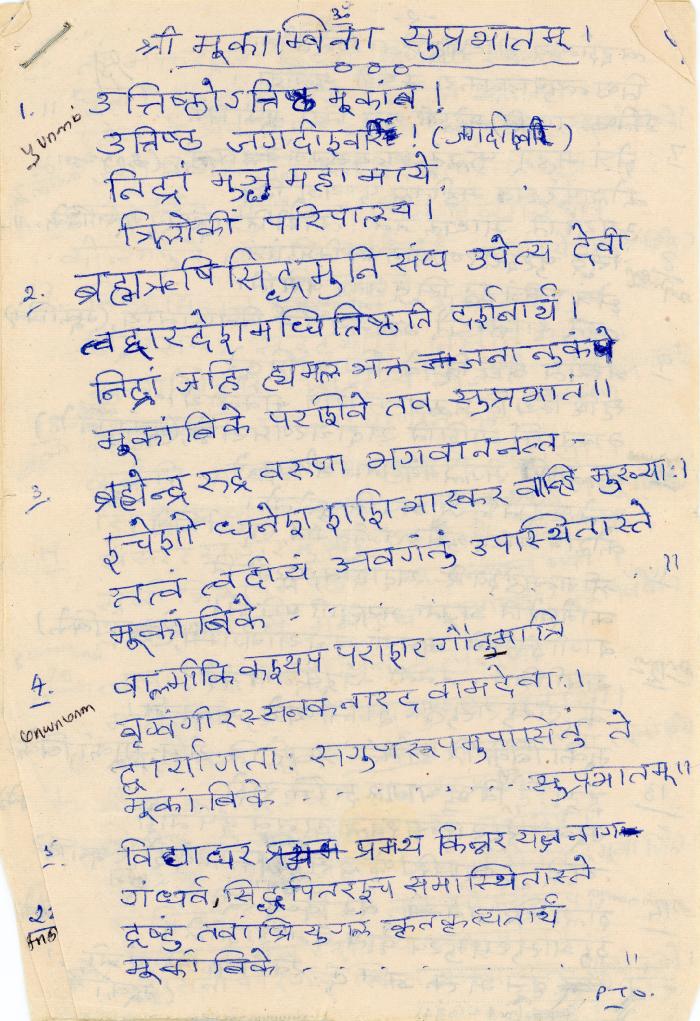 ॐ
श्री मूकाम्बिका सुप्रभातम् ।
1. उत्तिष्ठोऽत्तिष्ठ मूकांब !
उत्तिष्ठ जगदीश्वरि !
निद्रां मुञ्च महा माये
त्रिलोकीं परिपालय ।
2. ब्रह्मऋषि सिद्ध मुनि संघ उपेत्य देवी
त्वद्वारदेशमधितिष्ठति दर्शनार्थं ।
निद्रां जहि ह्यमल भक्त जनानुकंपे
मूकांबिके परशिवे तव सुप्रभातं ॥
3 ब्रह्मेन्द्र रुद्र वरुणा भगवाननन्त -
श्चेशो धनेश शशि भास्कर वह्नि मुख्याः ।
तत्वं त्वदीयं अवगंतुं उपस्थितास्ते
मूकांबिके - - - "
4. वाल्मीकि कश्यप पराशर गौतमात्रि
बृग्वंगीरस्सनक नारद वामदेवाः ।
द्वार्यागताः सगुणरूपमुपासितुं ते
मूकांबिके - - - - - सुप्रभातम् ॥
5. विद्याधर प्रमथ किन्नर यक्ष नाग
गंधर्व, सिद्ध पितरश्च समास्थितास्ते
द्रष्टुं तवांघ्रि युगलं कृतकृत्यतार्थं
मूकांबिके - - - - - "
P T O.